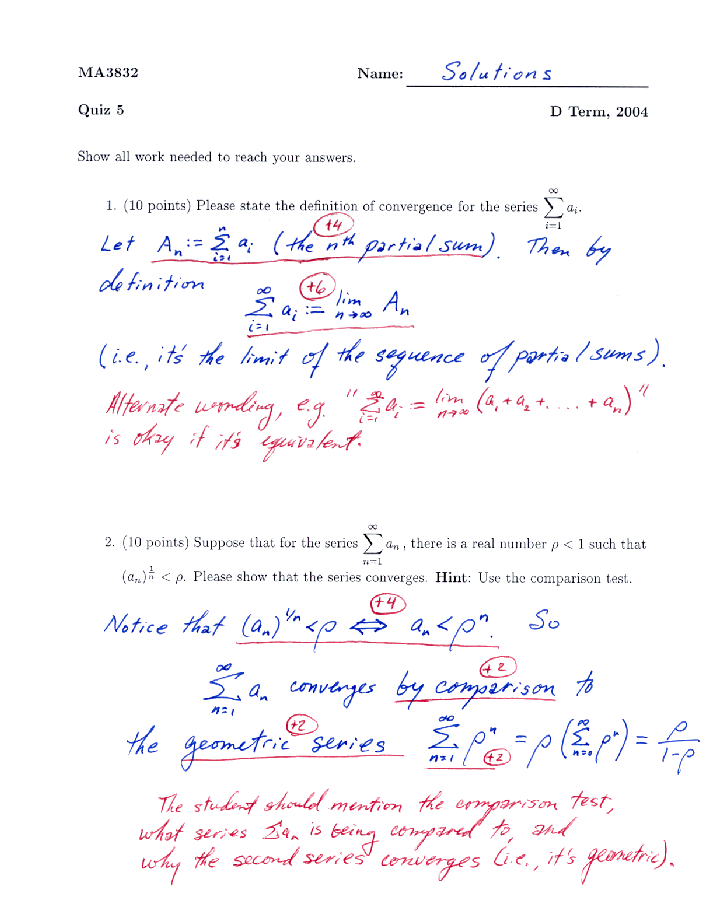 MA3832 Name: Solutions
Quiz 5 D Term, 2004
Show all work needed to reach your answers.
1. (10 points) Please state the definition of convergence for the series ∑_{i=1}^{∞} a_i.
+4
Let A_n := ∑_{i=1}^{n} a_i (the nth partial sum). Then by
definition
+6
∑_{i=1}^{∞} a_i := lim_{n→∞} A_n
(i.e., it's the limit of the sequence of partial sums).
Alternate wording, e.g. "∑_{i=1}^{∞} a_i = lim_{n→∞} (a_1 + a_2 + . . . + a_n)"
is okay if it's equivalent.
2. (10 points) Suppose that for the series ∑_{n=1}^{∞} a_n , there is a real number ρ < 1 such that
(a_n)^{1/n} < ρ. Please show that the series converges. Hint: Use the comparison test.
+4
Notice that (a_n)^{1/n} < ρ ⇔ a_n < ρ^n. So
+2
∑_{n=1}^{∞} a_n converges by comparison to
+2
the geometric series ∑_{n=1}^{∞} ρ^n = ρ (∑_{n=0}^{∞} ρ^n) = ρ/(1-ρ)
+2
The student should mention the comparison test,
what series ∑a_n is being compared to, and
why the second series converges (i.e., it's geometric).